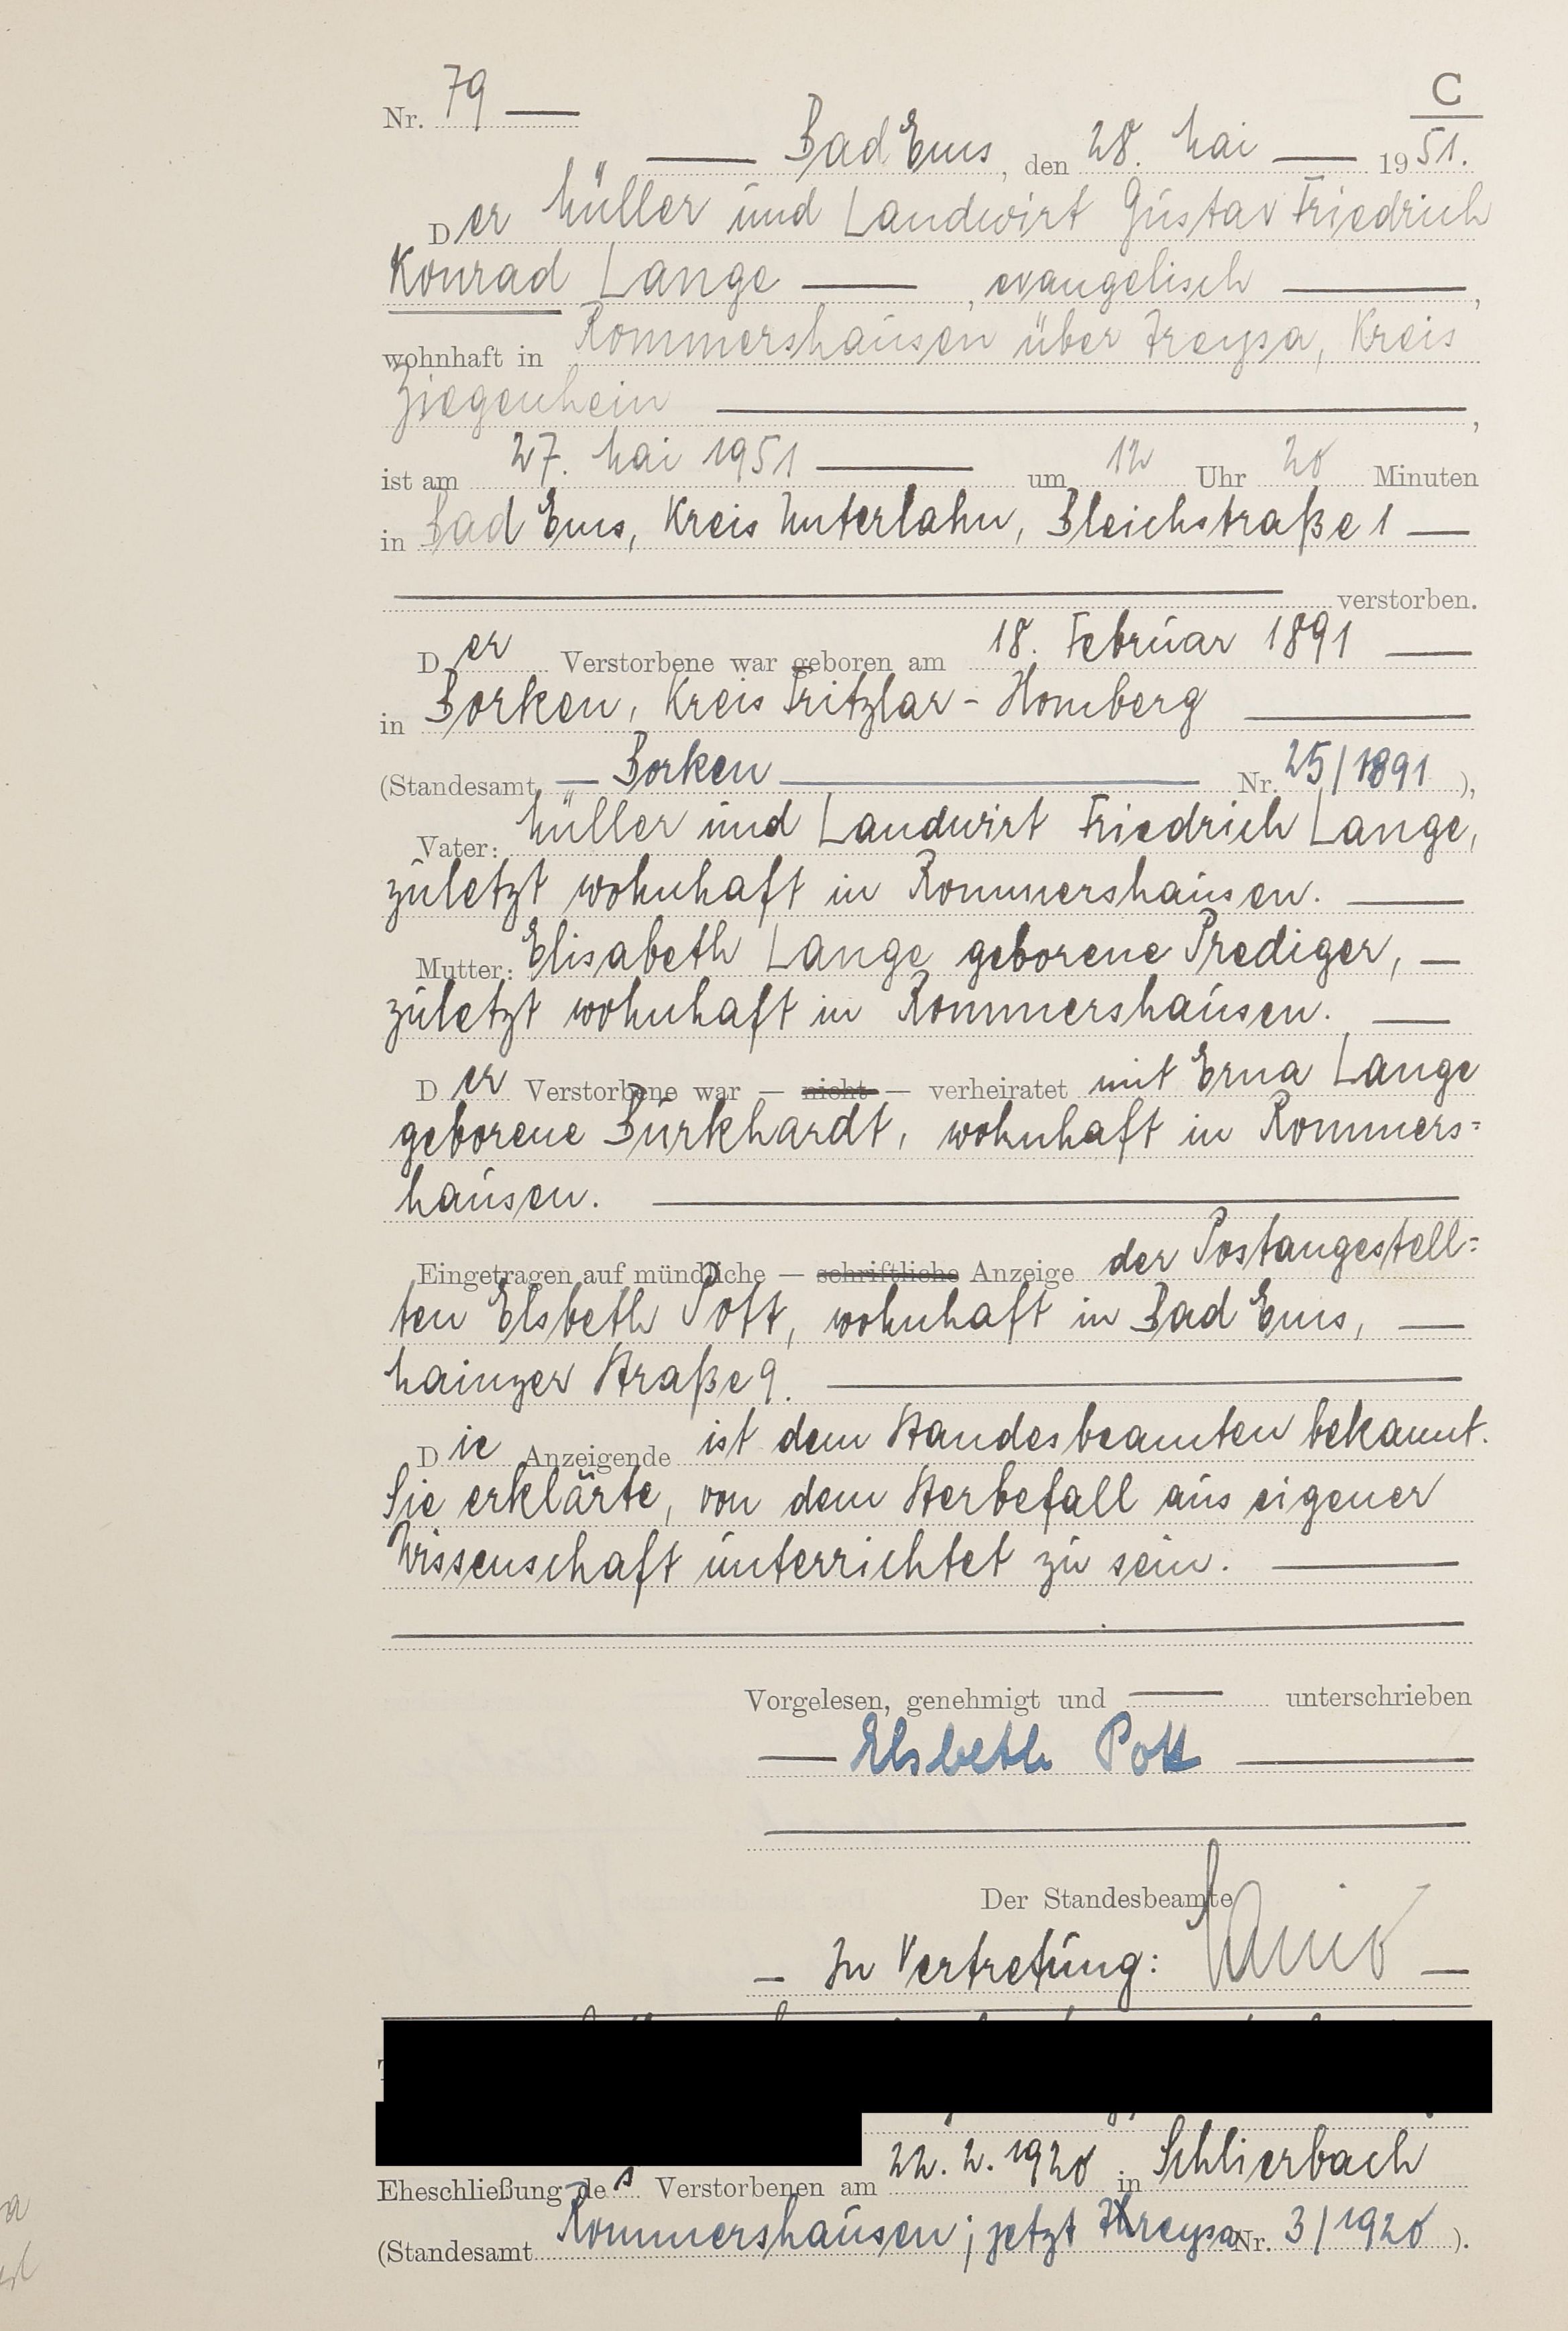 Nr. 79 —
C
— Bad Ems, den 28. Mai — 1951.
Der Müller und Landwirt Gustav Friedrich
Konrad Lange —, evangelisch —,
wohnhaft in Rommershausen über Treysa, Kreis
Ziegenhein —,
ist am 27. Mai 1951 — um 12 Uhr 20 Minuten
in Bad Ems, Kreis Unterlahn, Bleichstraße 1 —
— verstorben.
Der Verstorbene war geboren am 18. Februar 1891 —
in Borken, Kreis Fritzlar-Homberg —
(Standesamt — Borken — Nr. 25/1891),
Vater: Müller und Landwirt Friedrich Lange,
zuletzt wohnhaft in Rommershausen. —
Mutter: Elisabeth Lange geborene Prediger, —
zuletzt wohnhaft in Rommershausen. —
Der Verstorbene war — nicht — verheiratet mit Erna Lange
geborene Burkhardt, wohnhaft in Rommers=
hausen. —
Eingetragen auf mündliche — schriftliche Anzeige der Postangestell=
ten Elsbeth Pott, wohnhaft in Bad Ems, —
Mainzer Straße 9. —
Die Anzeigende ist dem Standesbeamten bekannt.
Sie erklärte, von dem Sterbefall aus eigener
Wissenschaft unterrichtet zu sein. —
Vorgelesen, genehmigt und — unterschrieben
— Elsbeth Pott —
Der Standesbeamte
— In Vertretung: —
Eheschließung des Verstorbenen am 22. 2. 1920 in Schlierbach
(Standesamt Rommershausen; jetzt Treysa Nr. 3/1920).